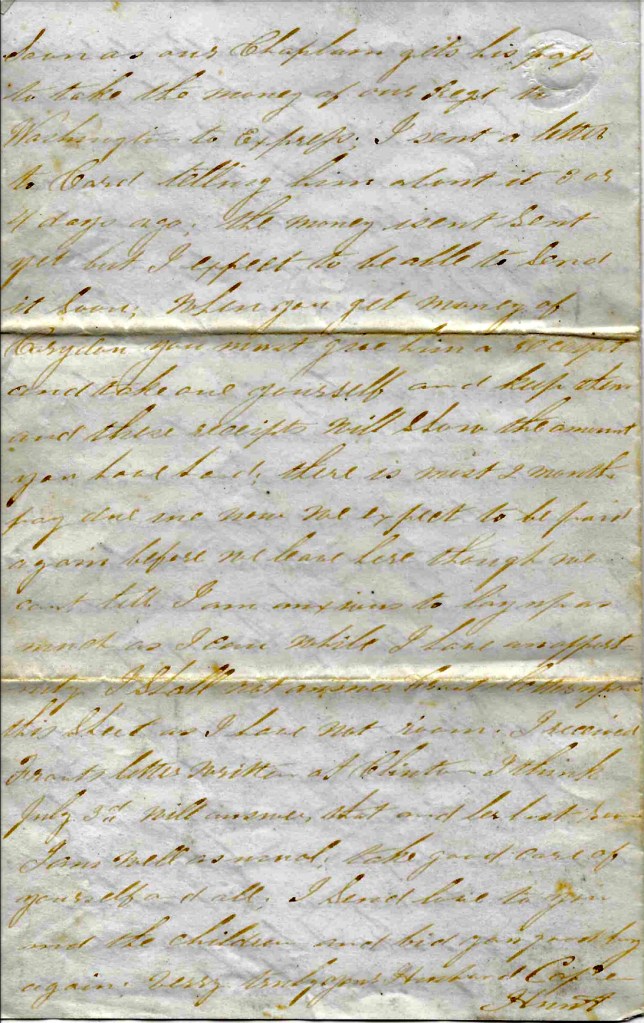 Soon as our Chaplain gets his pass
to take the money of our Regt to
Washington to Express. I sent a letter
to Card telling him about it 3 or
4 days ago. The money isent sent
yet but I expect to be able to send
it soon, when you get money of
Corydon you must give him a receipt
and take one yourself and keep them
and these receipts will show the amount
you have had, there is most 2 months
pay due me now we expect to be paid
again before we leave here though we
cant tell I am anxious to lay up as
much as I can while I have an opport-
unity I shall not answer letter upon
this sheet as I have not room. I received
Franks letter written at Clinton I think
July 3d will answer that and last soon
I am well as usual, take good care of
yourself and all, I send love to you
and the children and bid you good by
again. Verry truly your Husband
Hunt